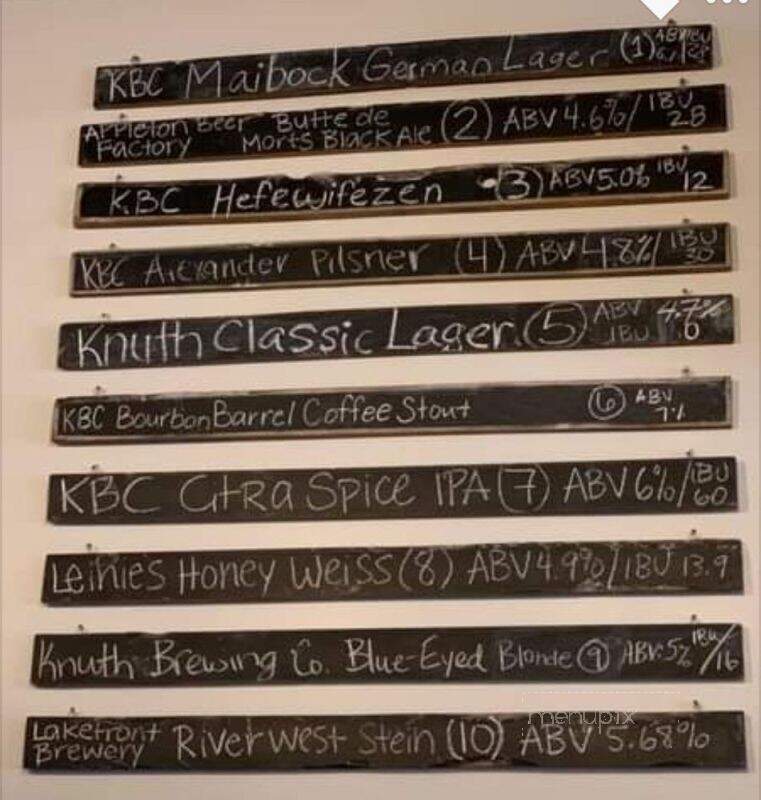 KBC Maibock German Lager (1) ABV IBU
Appleton Beer Factory Butte de Morts Black Ale (2) ABV 4.6% / IBU 28
KBC Hefewifezen (3) ABV 5.0% IBU 12
KBC Alexander Pilsner (4) ABV 4.8% / IBU 30
Knuth Classic Lager (5) ABV 4.7% IBU
KBC Bourbon Barrel Coffee Stout (6) ABV 7%
KBC Citra Spice IPA (7) ABV 6% / IBU 60
Leinies Honey Weiss (8) ABV 4.9% / IBU 13.9
Knuth Brewing Co. Blue-Eyed Blonde (9) ABV: 5% IBU / 16
Lakefront Brewery Riverwest Stein (10) ABV 5.68%
menupix